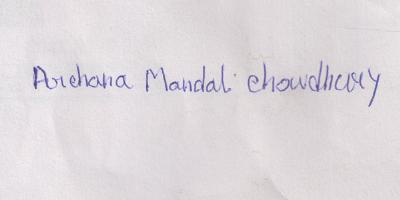 Archana Mandal chowdhury